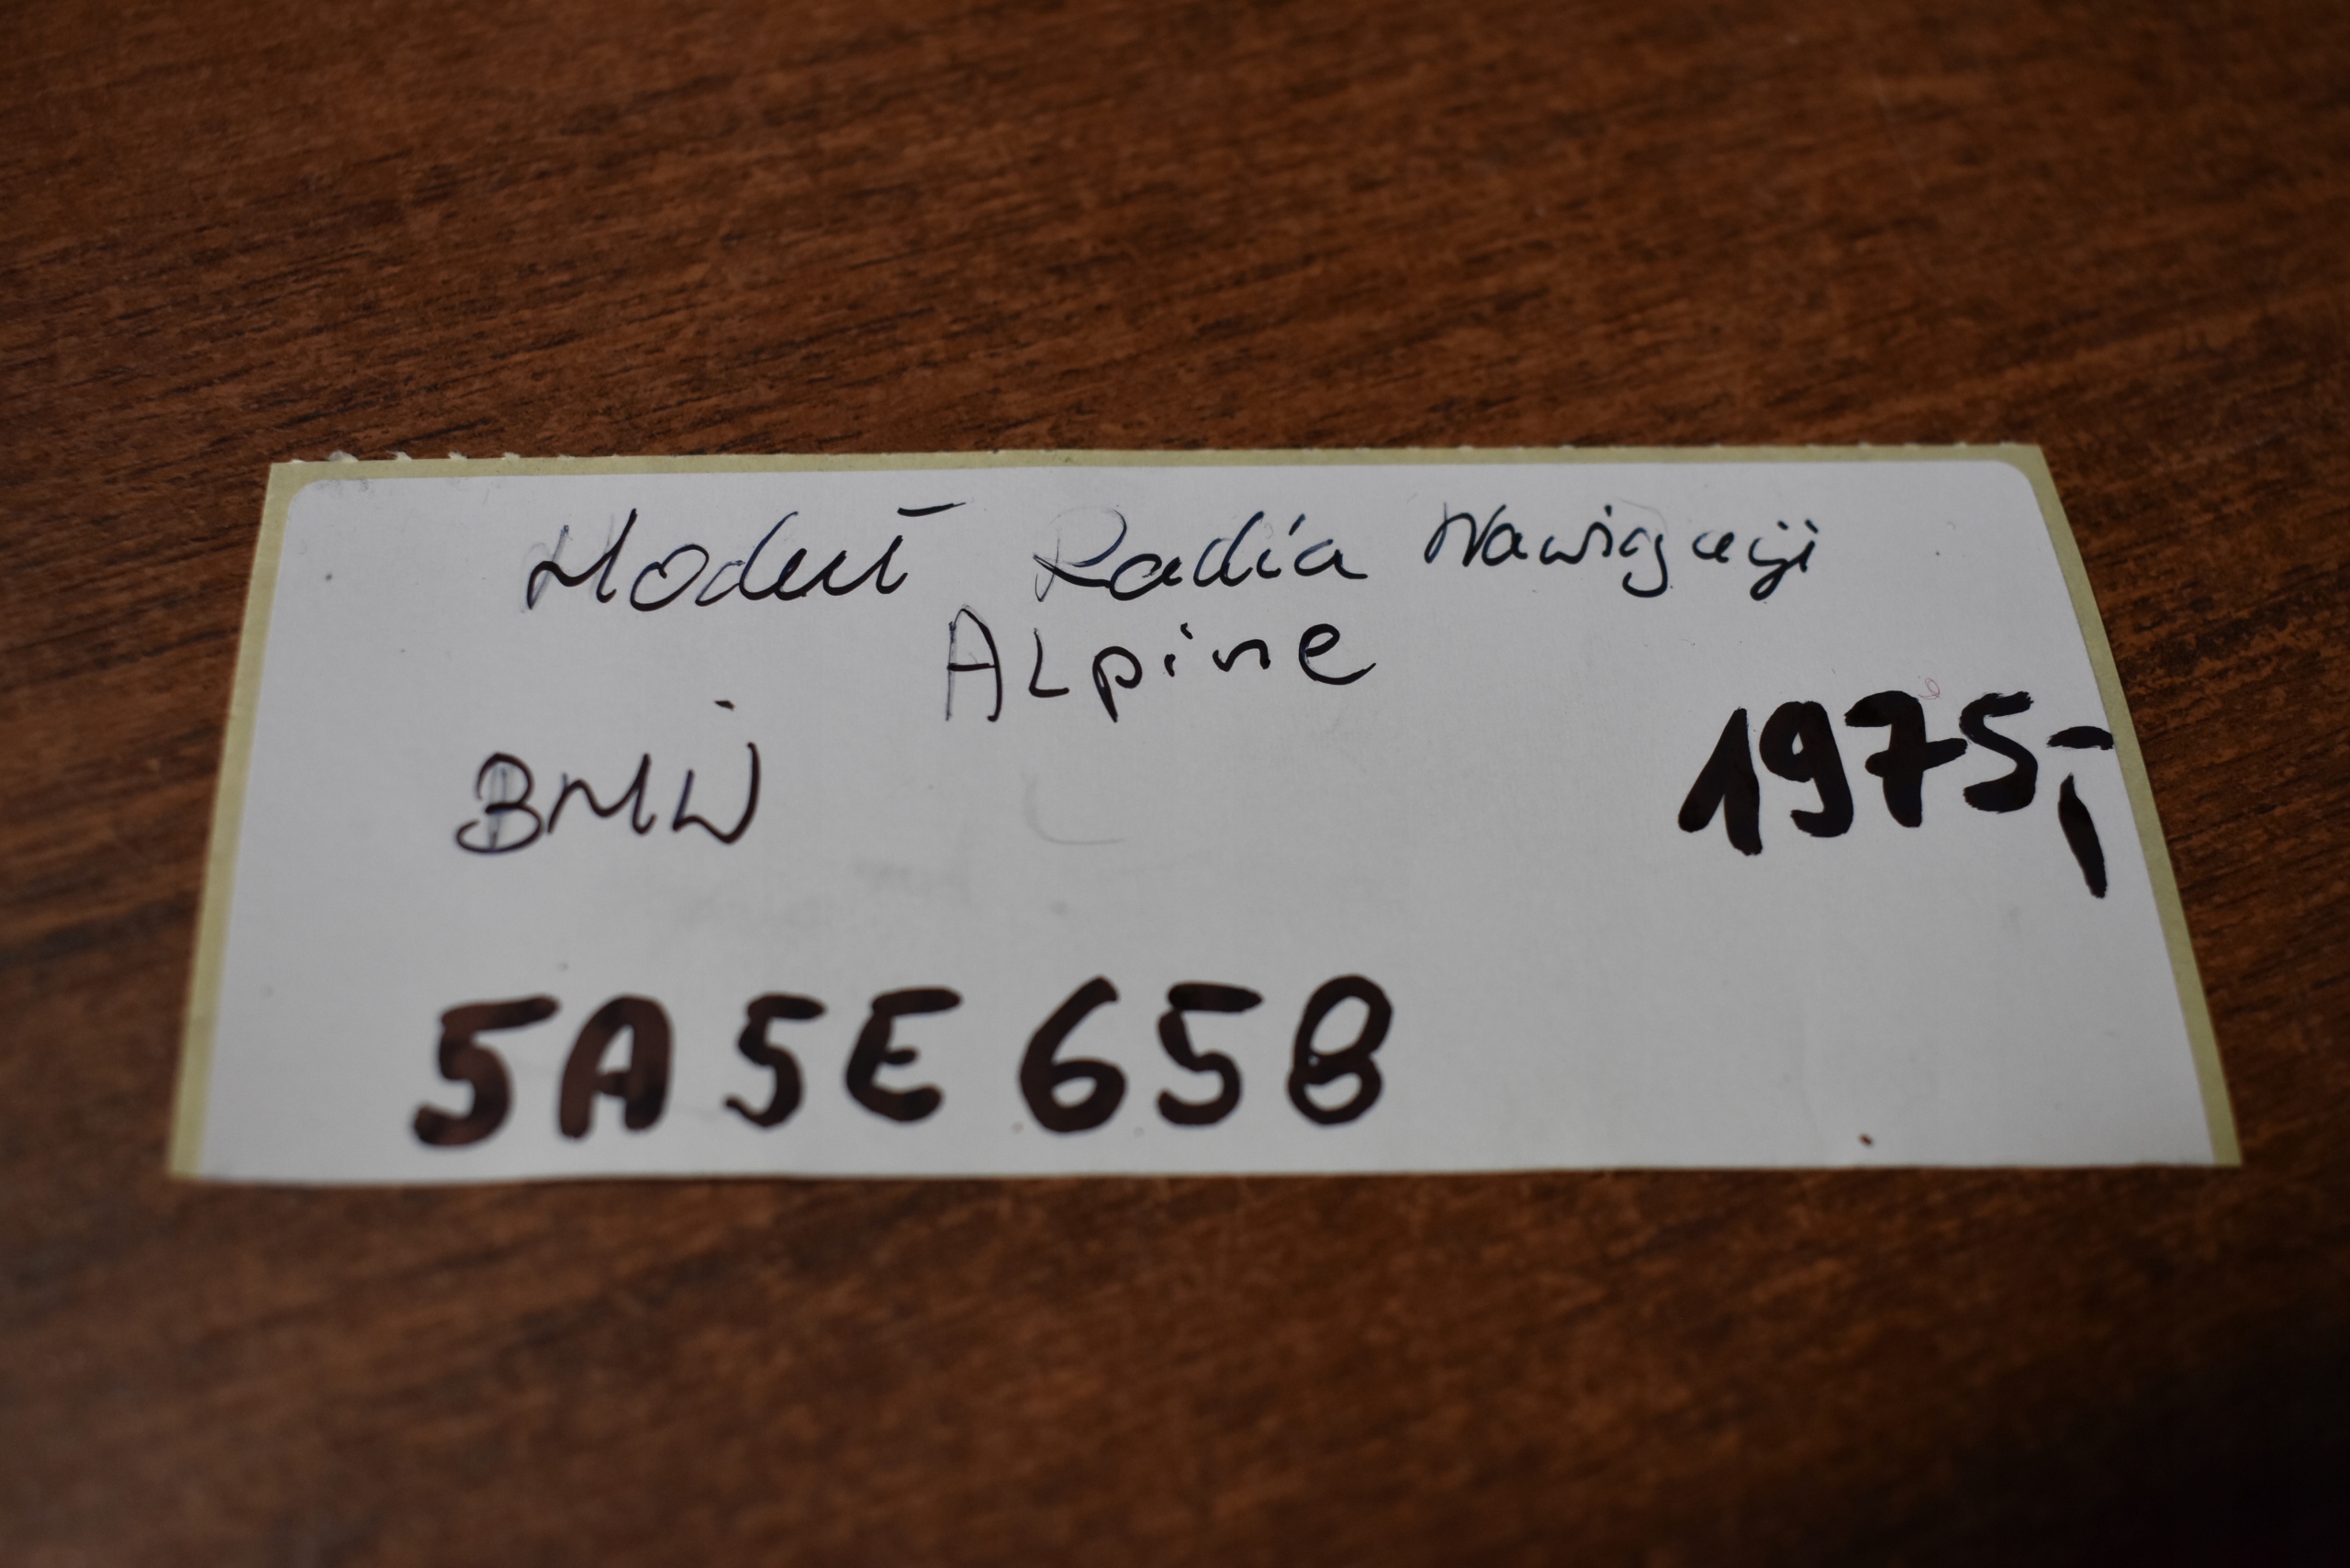 Moduł Radia Nawigacji
ALpine
BMW
1975,-
5A5E658